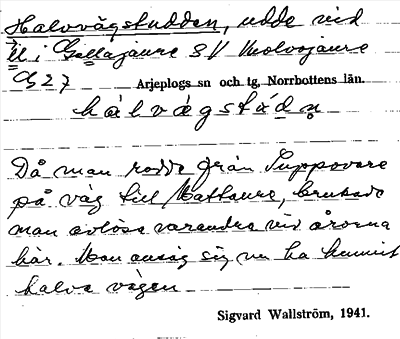 Halvvägsudden, udde vid
N i Galtajaure SV Molvojaure
G27 Arjeplogs sn och tg. Norrbottens län.
Då man rodde från Suppevare
på väg till Mattaure, brukade
man avlösa varandra vid årorna
här. Man ansåg sig nu ha hunnit
halva vägen
Sigvard Wallström, 1941.